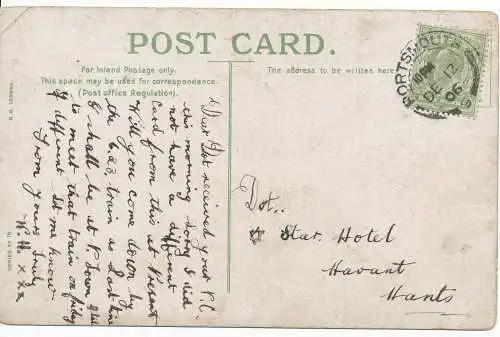 POST CARD.
For Inland Postage only.
This space may be used for correspondence.
(Post office Regulation).
The address to be written here.
PORTSMOUTH
DE 12
06
Dear Dot received your P.C.
this morning sorry I did
not have a different
Card from this at Present
Will you come down by
the 6.23 train as last time
I shall be at P. Town
to meet that train on friday
if different let me know
from yours truly
W. H. x x x
Dot..
Star. Hotel
Havant
Hants